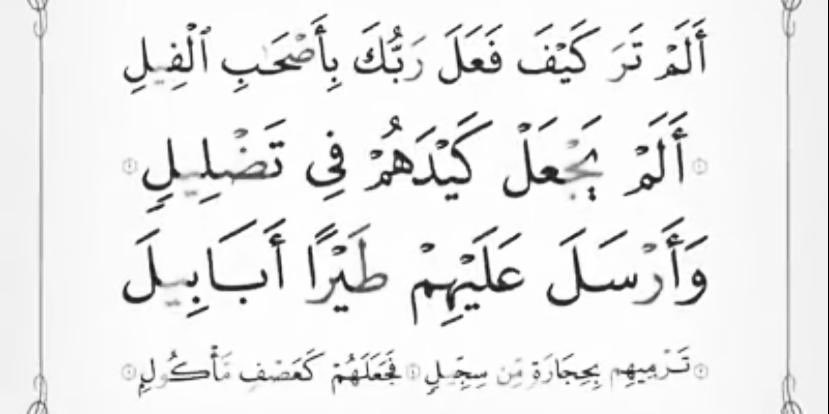 أَلَمْ تَرَ كَيْفَ فَعَلَ رَبُّكَ بِأَصْحَٰبِ ٱلْفِيلِ
أَلَمْ يَجْعَلْ كَيْدَهُمْ فِى تَضْلِيلٍ
وَأَرْسَلَ عَلَيْهِمْ طَيْرًا أَبَابِيلَ
تَرْمِيهِم بِحِجَارَةٍ مِّن سِجِّيلٍ فَجَعَلَهُمْ كَعَصْفٍ مَّأْكُولٍ